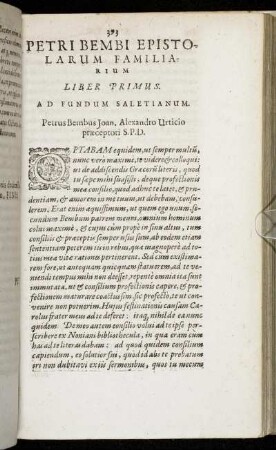 393
PETRI BEMBI EPISTO-
LARUM FAMILIA-
RIUM
LIBER PRIMUS.
AD FUNDUM SALETIANUM.
Petrus Bembus Joan. Alexandro Urticio
præceptori S.P.D.
OPTABAM equidem, ut semper multũ,
nunc verò maximè, te videre & colloqui:
ut de addiscendis Græcorũ literis, quod
tu sæpe mihi suasisti, deque profectionis
meæ consilio, quod adhuc te latet, & pru-
dentiam, & amorem in me tuum, ut debebam, consu-
lerem. Erat enim æquissimum, ut quem ego unum, se-
cundum Bembum patrem meum, omnium hominum
colui maximè, & cujus cum propè in sinu altus, tum
consiliis & præceptis semper usus sum, ab eodem etiam
sententiam peterem iis in rebus, quæ magnoperè ad to-
tius meæ vitæ rationem pertinerent. Sed cum existima-
rem fore, ut antequam quicquam statuerem, ad te ve-
niendi tempus mihi non deesset, repentè omnia ita sunt
immutata, ut & consilium profectionis capere, & pro-
fectionem maturare coactus sim: sic profectò, te ut con-
venire non potuerim. Hujus festinationis causam Ca-
rolus frater meus ad te detulit: itaq; nihil de ea nunc
quidem. De meo autem consilio volui ad te ipse per-
scribere ex Noniani bibliothecula, in qua eram cum
hæc ad te literas dabam: ad quod quidem consilium
capiendum, eo solutior sui, quod id abs te probatum
iri non dubitavi ex iis sermonibus, quos tu mecum